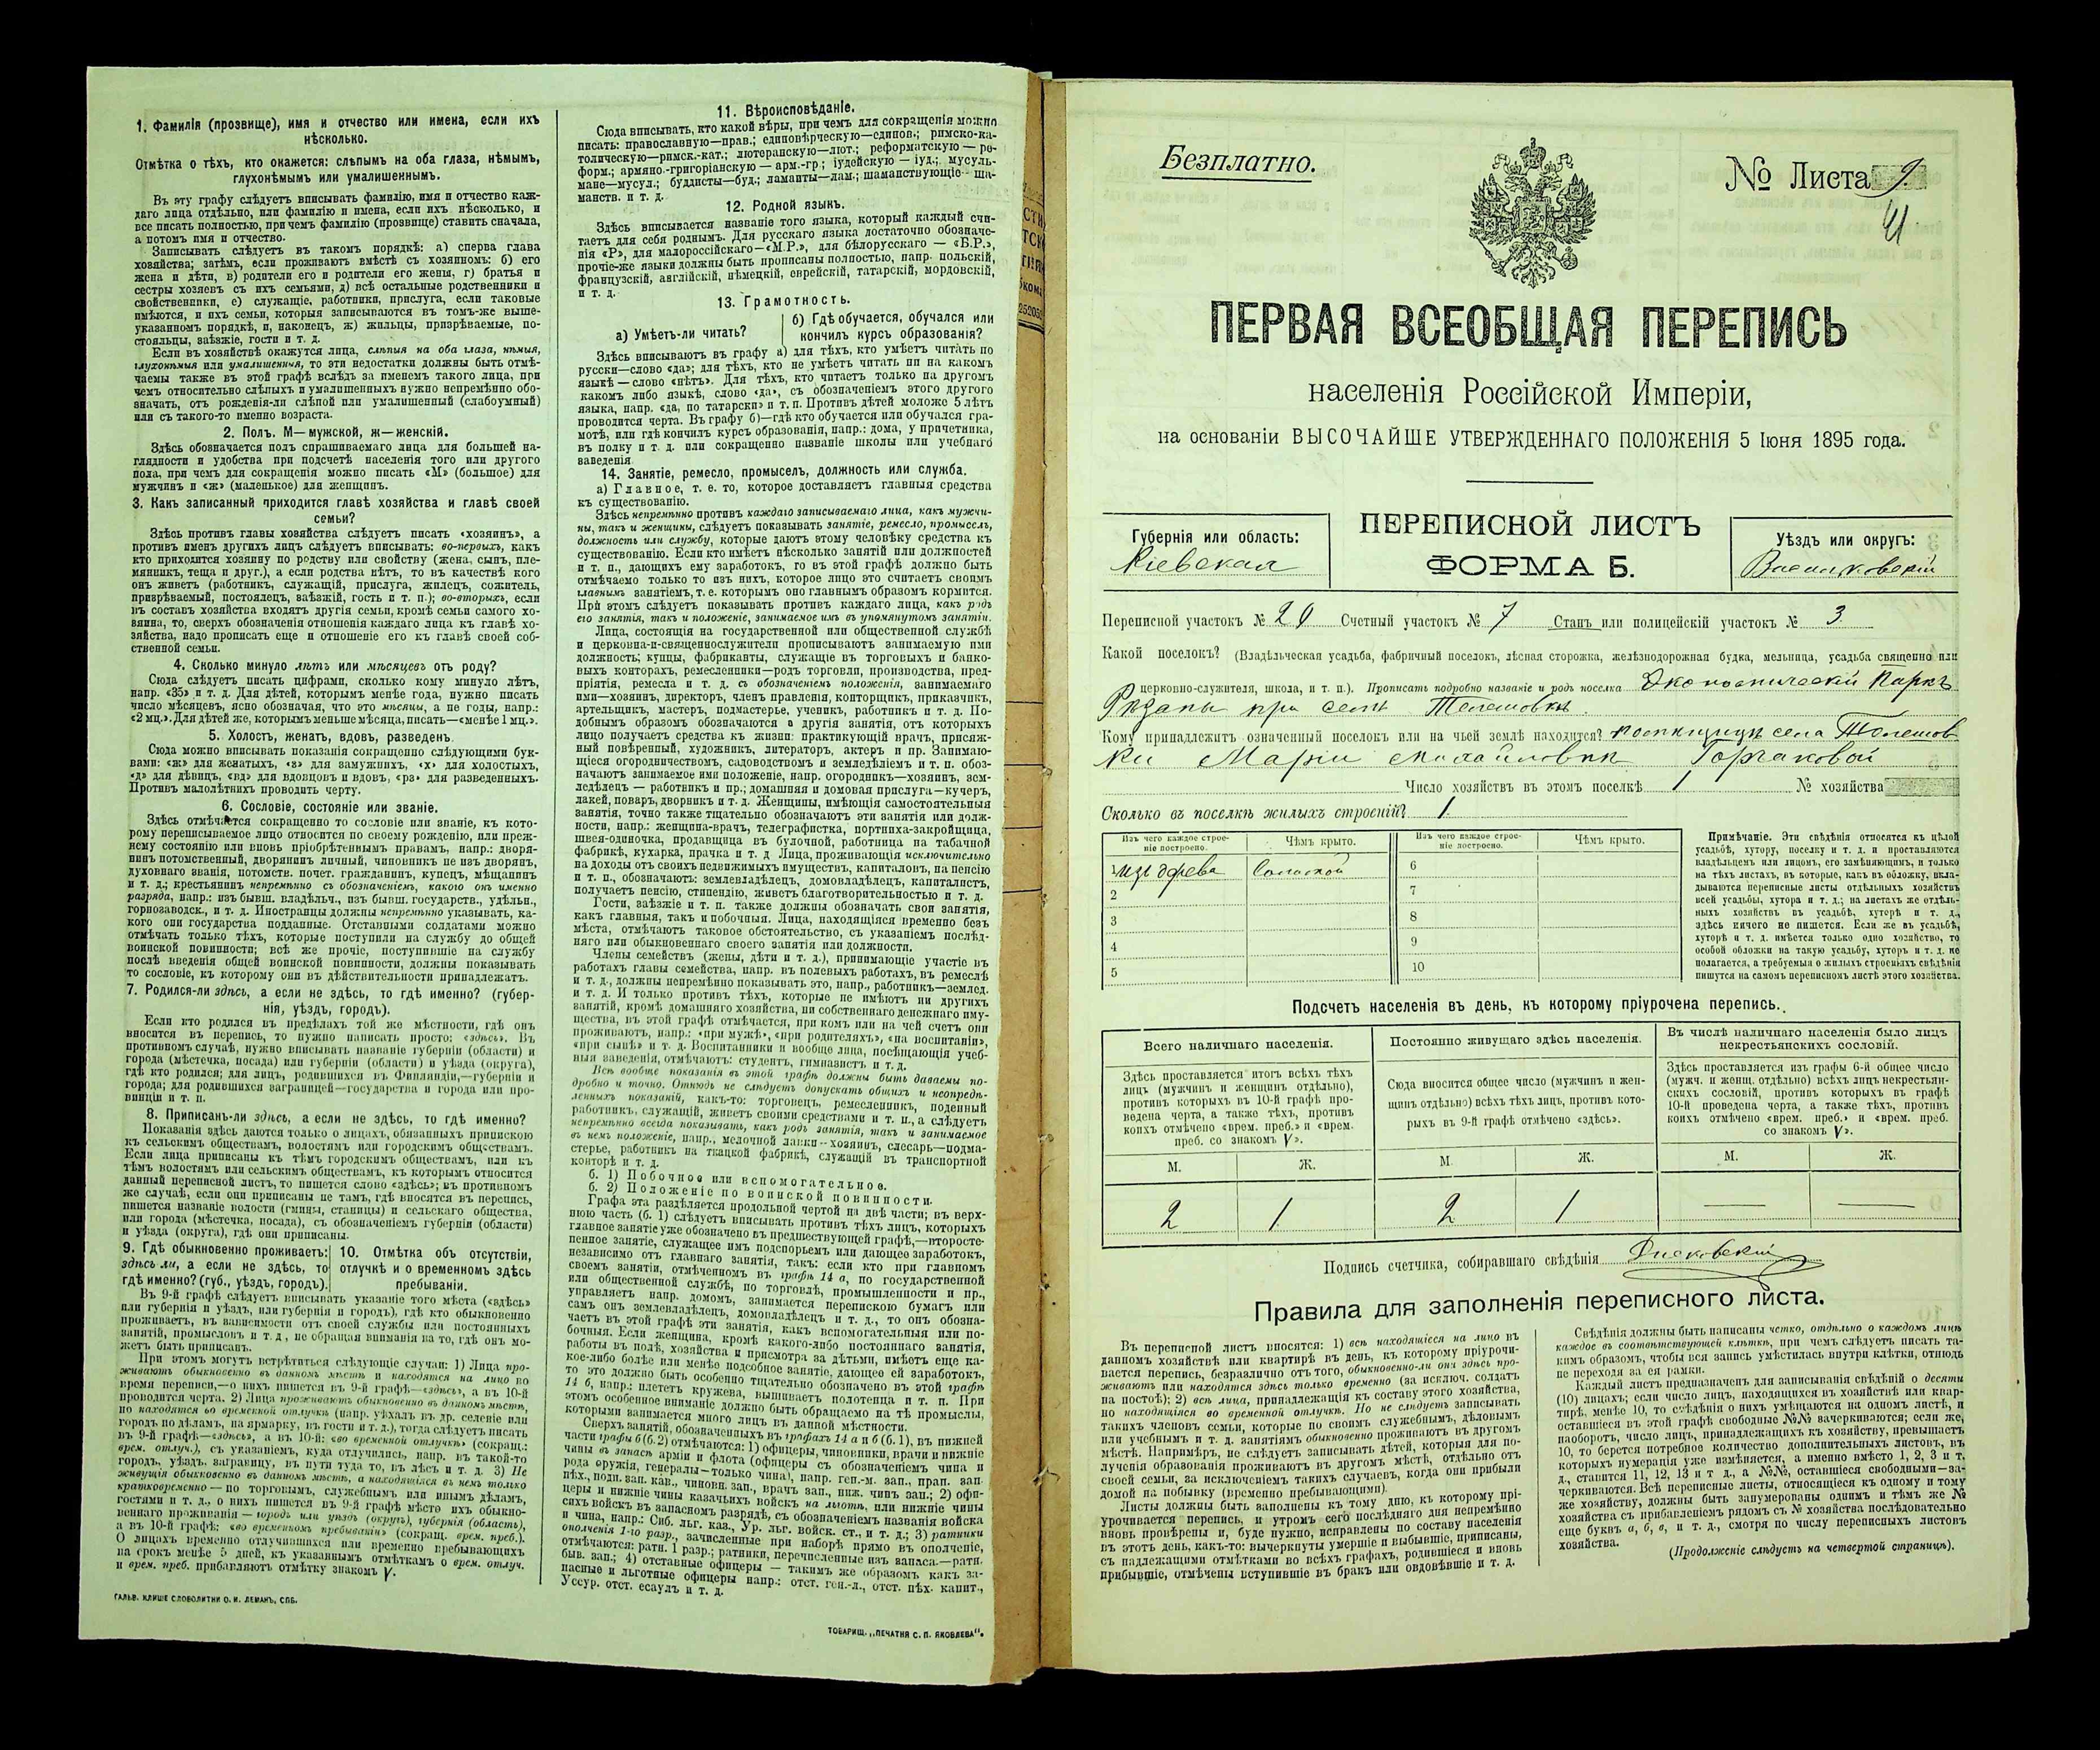 1. Фамилія (прозвище), имя и отчество или имена, если ихъ
нѣсколько.
Отмѣтка о тѣхъ, кто окажется: слѣпымъ на оба глаза, нѣмымъ,
глухонѣмымъ или умалишеннымъ.
Въ эту графу слѣдуетъ вписывать фамилію, имя и отчество каж-
даго лица отдѣльно, или фамилію и имена, если ихъ нѣсколько, и
все писать полностью, при чемъ фамилію (прозвище) ставить сначала,
а потомъ имя и отчество.
Записывать слѣдуетъ въ такомъ порядкѣ: а) сперва глава
хозяйства; затѣмъ, если проживаютъ вмѣстѣ съ хозяиномъ: б) его
жена и дѣти, в) родители его и родители его жены, г) братья и
сестры хозяевъ съ ихъ семьями, д) всѣ остальные родственники и
свойственники, е) служащіе, работники, прислуга, если таковые
имѣются, и ихъ семьи, которыя записываются въ томъ-же выше-
указанномъ порядкѣ, и, наконецъ, ж) жильцы, призрѣваемые, по-
стояльцы, заѣзжіе, гости и т. д.
Если въ хозяйствѣ окажутся лица, слѣпыя на оба глаза, нѣмыя,
глухонѣмыя или умалишенныя, то эти недостатки должны быть отмѣ-
чаемы также въ этой графѣ вслѣдъ за именемъ такого лица, при
чемъ относительно слѣпыхъ и умалишенныхъ нужно непремѣнно обо-
значать, отъ рожденія-ли слѣпой или умалишенный (слабоумный)
или съ такого-то именно возраста.
2. Полъ. М—мужской, ж—женскій.
Здѣсь обозначается полъ спрашиваемаго лица для большей на-
глядности и удобства при подсчетѣ населенія того или другого
пола, при чемъ для сокращенія можно писать «М» (большое) для
мужчинъ и «ж» (маленькое) для женщинъ.
3. Какъ записанный приходится главѣ хозяйства и главѣ своей
семьи?
Здѣсь противъ главы хозяйства слѣдуетъ писать «хозяинъ», а
противъ именъ другихъ лицъ слѣдуетъ вписывать: во-первыхъ, какъ
кто приходится хозяину по родству или свойству (жена, сынъ, пле-
мянникъ, теща и друг.), а если родства нѣтъ, то въ качествѣ кого
онъ живетъ (работникъ, служащій, прислуга, жилецъ, сожитель,
призрѣваемый, постоялецъ, заѣзжій, гость и т. п.); во-вторыхъ, если
въ составъ хозяйства входятъ другія семьи, кромѣ семьи самого хо-
зяина, то, сверхъ обозначенія отношенія каждаго лица къ главѣ хо-
зяйства, надо прописать еще и отношеніе его къ главѣ своей соб-
ственной семьи.
4. Сколько минуло лѣтъ или мѣсяцевъ отъ роду?
Сюда слѣдуетъ писать цифрами, сколько кому минуло лѣтъ,
напр. «35» и т. д. Для дѣтей, которымъ менѣе года, нужно писать
число мѣсяцевъ, ясно обозначая, что это мѣсяцы, а не годы, напр.:
«2 мц.». Для дѣтей же, которымъ меньше мѣсяца, писать—«менѣе 1 мц.».
5. Холостъ, женатъ, вдовъ, разведенъ.
Сюда можно вписывать показанія сокращенно слѣдующими бук-
вами: «ж» для женатыхъ, «з» для замужнихъ, «х» для холостыхъ,
«д» для дѣвицъ, «вд» для вдовцовъ и вдовъ, «рз» для разведенныхъ.
Противъ малолѣтнихъ проводить черту.
6. Сословіе, состояніе или званіе.
Здѣсь отмѣчается сокращенно то сословіе или званіе, къ кото-
рому переписываемое лицо относится по своему рожденію, или преж-
нему состоянію или вновь пріобрѣтеннымъ правамъ, напр: дворя-
нинъ потомственный, дворянинъ личный, чиновникъ не изъ дворянъ,
духовнаго званія, потомств. почет. гражданинъ, купецъ, мѣщанинъ
и т. д.; крестьянинъ непремѣнно съ обозначеніемъ, какого онъ именно
разряда, напр.: изъ бывш. владѣльч., изъ бывш. государств., удѣльн.,
горнозаводск., и т. д. Иностранцы должны непремѣнно указывать, ка-
кого они государства подданные. Отставными солдатами можно
отмѣчать только тѣхъ, которые поступили на службу до общей
воинской повинности; всѣ же прочіе, поступившіе на службу
послѣ введенія общей воинской повинности, должны показывать
то сословіе, къ которому они въ дѣйствительности принадлежатъ.
7. Родился-ли здѣсь, а если не здѣсь, то гдѣ именно? (губер-
нія, уѣздъ, городъ).
Если кто родился въ предѣлахъ той же мѣстности, гдѣ онъ
вносится въ перепись, то нужно написать просто: «здѣсь». Въ
противномъ случаѣ, нужно вписывать названіе губерніи (области) и
города (мѣстечка, посада) или губерніи (области) и уѣзда (округа),
гдѣ кто родился; для лицъ, родившихся въ Финляндіи,—губерніи и
города; для родившихся заграницей—государства и города или про-
винціи и т. п.
8. Приписанъ-ли здѣсь, а если не здѣсь, то гдѣ именно?
Показанія здѣсь даются только о лицахъ, обязанныхъ припискою
къ сельскимъ обществамъ, волостямъ или городскимъ обществамъ.
Если лица приписаны къ тѣмъ городскимъ обществамъ, или къ
тѣмъ волостямъ или сельскимъ обществамъ, къ которымъ относится
данный переписной листъ, то пишется слово «здѣсь»; въ противномъ
же случаѣ, если они приписаны не тамъ, гдѣ вносятся въ перепись,
пишется названіе волости (гмины, станицы) и сельскаго общества,
или города (мѣстечка, посада), съ обозначеніемъ губерніи (области)
и уѣзда (округа), гдѣ они приписаны.
9. Гдѣ обыкновенно проживаетъ:
здѣсь ли, а если не здѣсь, то
гдѣ именно? (губ., уѣздъ, городъ).
10. Отмѣтка объ отсутствіи,
отлучкѣ и о временномъ здѣсь
пребываніи.
Въ 9-й графѣ слѣдуетъ вписывать указаніе того мѣста («здѣсь»
или губернія и уѣздъ, или губернія и городъ), гдѣ кто обыкновенно
проживаетъ, въ зависимости отъ своей службы или постоянныхъ
занятій, промысловъ и т. д., не обращая вниманія на то, гдѣ онъ мо-
жетъ быть приписанъ.
При этомъ могутъ встрѣтиться слѣдующіе случаи: 1) Лица про-
живаютъ обыкновенно въ данномъ мѣстѣ и находятся на лицо во
время переписи,—о нихъ пишется въ 9-й графѣ—«здѣсь», а въ 10-й
проводится черта. 2) Лица проживаютъ обыкновенно въ данномъ мѣстѣ,
но находятся во временной отлучкѣ (напр. уѣхалъ въ др. селеніе или
городъ по дѣламъ, на ярмарку, въ гости и т. д.), тогда слѣдуетъ писать
въ 9-й графѣ—«здѣсь», а въ 10-й: «во временной отлучкѣ» (сокращ.:
врем. отлуч.), съ указаніемъ, куда отлучились, напр. въ такой-то
городъ, уѣздъ, заграницу, въ пути туда то, въ лѣсъ и т. д. 3) Не
живущія обыкновенно въ данномъ мѣстѣ, а находящіяся въ немъ только
кратковременно — по торговымъ, служебнымъ или инымъ дѣламъ,
гостями и т. д., о нихъ пишется въ 9-й графѣ мѣсто ихъ обыкно-
веннаго проживанія — городъ или уѣздъ (округъ), губернія (область),
а въ 10-й графѣ: «во временномъ пребываніи» (сокращ. врем. преб.).
О лицахъ временно отлучившихся или временно пребывающихъ
на срокъ менѣе 5 дней, къ указаннымъ отмѣткамъ о врем. отлуч.
и врем. преб. прибавляютъ отмѣтку знакомъ V.
ГАЛЬВ. КЛИШЕ СЛОВОЛИТНИ О. И. ЛЕМАНЪ, СПБ.
11. Вѣроисповѣданіе.
Сюда вписывать, кто какой вѣры, при чемъ для сокращенія можно
писать: православную—прав.; единовѣрческую—единов.; римско-ка-
толическую—римск.-кат.; лютеранскую—лют.; реформатскую — ре-
форм.; армяно.-григоріанскую — арм.-гр; іудейскую — іуд.; мусуль-
мане—мусул.; буддисты—буд.; ламаиты—лам.; шаманствующіе—ша-
манств. и т. д.
12. Родной языкъ.
Здѣсь вписывается названіе того языка, который каждый счи-
таетъ для себя роднымъ. Для русскаго языка достаточно обозначе-
нія «Р», для малороссійскаго—«М.Р.», для бѣлорусскаго — «Б.Р.»,
прочіе-же языки должны быть прописаны полностью, напр. польскій,
французскій, англійскій, нѣмецкій, еврейскій, татарскій, мордовскій,
и т. д.
13. Грамотность.
а) Умѣетъ-ли читать?
б) Гдѣ обучается, обучался или
кончилъ курсъ образованія?
Здѣсь вписываютъ въ графу а) для тѣхъ, кто умѣетъ читать по
русски—слово «да»; для тѣхъ, кто не умѣетъ читать ни на какомъ
языкѣ — слово «нѣтъ». Для тѣхъ, кто читаетъ только на другомъ
какомъ либо языкѣ, слово «да», съ обозначеніемъ этого другого
языка, напр. «да, по татарски» и т. п. Противъ дѣтей моложе 5 лѣтъ
проводится черта. Въ графу б)—гдѣ кто обучается или обучался гра-
мотѣ, или гдѣ кончилъ курсъ образованія, напр.: дома, у причетника,
въ полку и т. д. или сокращенно названіе школы или учебнаго
заведенія.
14. Занятіе, ремесло, промыселъ, должность или служба.
а) Главное, т. е. то, которое доставляетъ главныя средства
къ существованію.
Здѣсь непремѣнно противъ каждаго записываемаго лица, какъ мужчи-
ны, такъ и женщины, слѣдуетъ показывать занятіе, ремесло, промыселъ,
должность или службу, которые даютъ этому человѣку средства къ
существованію. Если кто имѣетъ нѣсколько занятій или должностей
и т. п., дающихъ ему заработокъ, то въ этой графѣ должно быть
отмѣчаемо только то изъ нихъ, которое лицо это считаетъ своимъ
главнымъ занятіемъ, т. е. которымъ оно главнымъ образомъ кормится.
При этомъ слѣдуетъ показывать противъ каждаго лица, какъ родъ
его занятія, такъ и положеніе, занимаемое имъ въ упомянутомъ занятіи.
Лица, состоящія на государственной или общественной службѣ
и церковно-и-священнослужители прописываютъ занимаемую ими
должность; купцы, фабриканты, служащіе въ торговыхъ и банко-
выхъ конторахъ, ремесленники—родъ торговли, производства, пред-
пріятія, ремесла и т. д. съ обозначеніемъ положенія, занимаемаго
ими—хозяинъ, директоръ, членъ правленія, конторщикъ, приказчикъ,
артельщикъ, мастеръ, подмастерье, ученикъ, работникъ и т. д. По-
добнымъ образомъ обозначаются и другія занятія, отъ которыхъ
лицо получаетъ средства къ жизни: практикующій врачъ, присяж-
ный повѣренный, художникъ, литераторъ, актеръ и пр. Занимаю-
щіеся огородничествомъ, садоводствомъ и земледѣліемъ и т. п. обоз-
начаютъ занимаемое ими положеніе, напр. огородникъ—хозяинъ, зем-
ледѣлецъ — работникъ и пр.; домашняя и домовая прислуга—кучеръ,
лакей, поваръ, дворникъ и т. д. Женщины, имѣющія самостоятельныя
занятія, точно также тщательно обозначаютъ эти занятія или долж-
ности, напр.: женщина-врачъ, телеграфистка, портниха-закройщица,
швея-одиночка, продавщица въ булочной, работница на табачной
фабрикѣ, кухарка, прачка и т. д. Лица, проживающія исключительно
на доходы отъ своихъ недвижимыхъ имуществъ, капиталовъ, на пенсію
и т. п., обозначаютъ: землевладѣлецъ, домовладѣлецъ, капиталистъ,
получаетъ пенсію, стипендію, живетъ благотворительностью и т. д.
Гости, заѣзжіе и т. п. также должны обозначать свои занятія,
какъ главныя, такъ и побочныя. Лица, находящіяся временно безъ
мѣста, отмѣчаютъ таковое обстоятельство, съ указаніемъ послѣд-
няго или обыкновеннаго своего занятія или должности.
Члены семействъ (жены, дѣти и т. д.), принимающіе участіе въ
работахъ главы семейства, напр. въ полевыхъ работахъ, въ ремеслѣ
и т. д., должны непремѣнно показывать это, напр., работникъ—землед.
и т. д. И только противъ тѣхъ, которые не имѣютъ ни другихъ
занятій, кромѣ домашняго хозяйства, ни собственнаго денежнаго иму-
щества, въ этой графѣ отмѣчается, при комъ или на чей счетъ они
проживаютъ, напр.: «при мужѣ», «при родителяхъ», «на воспитаніи»,
«при сынѣ» и т. д. Воспитанники и вообще лица, посѣщающія учеб-
ныя заведенія, отмѣчаютъ: студентъ, гимназистъ и т. д.
Всѣ вообще показанія въ этой графѣ должны быть даваемы по-
дробно и точно. Отнюдь не слѣдуетъ допускать общихъ и неопредѣ-
ленныхъ показаній, какъ-то: торговецъ, ремесленникъ, поденный
работникъ, служащій, живетъ своими средствами и т. п., а слѣдуетъ
непремѣнно всегда показывать, какъ родъ занятія, такъ и занимаемое
въ немъ положеніе, напр., мелочной лавки—хозяинъ, слесарь—подма-
стерье, работникъ на ткацкой фабрикѣ, служащій въ транспортной
конторѣ и т. д.
б. 1) Побочное или вспомогательное.
б. 2) Положеніе по воинской повинности.
Графа эта раздѣляется продольной чертой на двѣ части; въ верх-
нюю часть (б. 1) слѣдуетъ вписывать противъ тѣхъ лицъ, которыхъ
главное занятіе уже обозначено въ предшествующей графѣ,—второсте-
пенное занятіе, служащее имъ подспорьемъ или дающее заработокъ,
независимо отъ главнаго занятія, такъ: если кто при главномъ
своемъ занятіи, отмѣченномъ въ графѣ 14 а, по государственной
или общественной службѣ, по торговлѣ, промышленности и пр.,
управляетъ напр. домомъ, занимается перепискою бумагъ или
самъ онъ землевладѣлецъ, домовладѣлецъ и т. д., то онъ обозна-
чаетъ въ этой графѣ эти занятія, какъ вспомогательныя или по-
бочныя. Если женщина, кромѣ какого-либо постояннаго занятія,
работы въ полѣ, хозяйства и присмотра за дѣтьми, имѣетъ еще ка-
кое-либо болѣе или менѣе подсобное занятіе, дающее ей заработокъ,
то это должно быть особенно тщательно обозначено въ этой графѣ
14 б, напр.: плететъ кружева, вышиваетъ полотенца и т. п. При
этомъ особенное вниманіе должно быть обращаемо на тѣ промыслы,
которыми занимается много лицъ въ данной мѣстности.
Сверхъ занятій, обозначенныхъ въ графахъ 14 а и б (б. 1), въ нижней
части графы б (б. 2) отмѣчаются: 1) офицеры, чиновники, врачи и нижніе
чины въ запасѣ арміи и флота (офицеры съ обозначеніемъ чина и
рода оружія, генералы—только чина), напр. ген.-м. зап., прап. зап.
пѣх., подп. зап. кав., чиновн. зап., врачъ зап., ниж. чинъ зап.; 2) офи-
церы и нижніе чины казачьихъ войскъ на льготѣ, или нижніе чины
сихъ войскъ въ запасномъ разрядѣ, съ обозначеніемъ названія войска
и чина, напр.: Сиб. льг. каз., Ур. льг. войск. ст., и т. д.; 3) ратники
ополченія 1-го разр., зачисленные при наборѣ прямо въ ополченіе,
отмѣчаются: ратн. 1 разр.; ратники, перечисленные изъ запаса.—ратн.
быв. зап.; 4) отставные офицеры — такимъ же образомъ какъ за-
пасные и льготные офицеры напр.: отст. ген.-л., отст. пѣх. капит.,
Уссур. отст. есаулъ и т. д.
ТОВАРИЩ. „ПЕЧАТНЯ С. П. ЯКОВЛЕВА“.
Безплатно.
№ Листа 9.
41
ПЕРВАЯ ВСЕОБЩАЯ ПЕРЕПИСЬ
населенія Россійской Имперіи,
на основаніи ВЫСОЧАЙШЕ УТВЕРЖДЕННАГО ПОЛОЖЕНІЯ 5 Іюня 1895 года.
ПЕРЕПИСНОЙ ЛИСТЪ
ФОРМА Б.
Губернія или область:
Кіевская
Уѣздъ или округъ:
Васильковскій
Переписной участокъ № 20 Счетный участокъ № 7 Станъ или полицейскій участокъ № 3
Какой поселокъ? (Владѣльческая усадьба, фабричный поселокъ, лѣсная сторожка, желѣзнодорожная будка, мельница, усадьба священно или
церковно-служителя, школа, и т. п.). Прописать подробно названіе и родъ поселка Экономическій Паркъ
при селѣ Телешовкѣ.
Кому принадлежитъ означенный поселокъ или на чьей землѣ находится? помѣщицы села Телешов
ки Маріи Михайловны Горчаковой
Число хозяйствъ въ этомъ поселкѣ 1 № хозяйства
Сколько въ поселкѣ жилыхъ строеній? 1.
Изъ чего каждое строе-
ніе построено.
Чѣмъ крыто.
Изъ чего каждое строе-
ніе построено.
Чѣмъ крыто.
1 изъ дерева Соломой 6
2 7
3 8
4 9
5 10
Примѣчаніе. Эти свѣдѣнія относятся къ цѣлой
усадьбѣ, хутору, поселку и т. д. и проставляются
владѣльцемъ или лицомъ, его замѣняющимъ, и только
на тѣхъ листахъ, въ которые, какъ въ обложку, вкла-
дываются переписные листы отдѣльныхъ хозяйствъ
всей усадьбы, хутора и т. д.; на листахъ же отдѣль-
ныхъ хозяйствъ въ усадьбѣ, хуторѣ и т. д.,
здѣсь ничего не пишется. Если же въ усадьбѣ,
хуторѣ и т. д. имѣется только одно хозяйство, то
особой обложки на такую усадьбу, хуторъ и т. д. не
полагается, а требуемыя о жилыхъ строеніяхъ свѣдѣнія
пишутся на самомъ переписномъ листѣ этого хозяйства.
Подсчетъ населенія въ день, къ которому пріурочена перепись.
Всего наличнаго населенія.
Здѣсь проставляется итогъ всѣхъ тѣхъ
лицъ (мужчинъ и женщинъ отдѣльно),
противъ которыхъ въ 10-й графѣ про-
ведена черта, а также тѣхъ, противъ
коихъ отмѣчено «врем. преб.» и «врем.
преб. со знакомъ V».
Постоянно живущаго здѣсь населенія.
Сюда вносится общее число (мужчинъ и жен-
щинъ отдѣльно) всѣхъ тѣхъ лицъ, противъ кото-
рыхъ въ 9-й графѣ отмѣчено «здѣсь».
Въ числѣ наличнаго населенія было лицъ
некрестьянскихъ сословій.
Здѣсь проставляется изъ графы 6-й общее число
(мужч. и женщ. отдѣльно) всѣхъ лицъ некрестьян-
скихъ сословій, противъ которыхъ въ графѣ
10-й проведена черта, а также тѣхъ, противъ
коихъ отмѣчено «врем. преб.» и «врем. преб.
со знакомъ V».
М. Ж. М. Ж. М. Ж.
2 1 2 1 — —
Подпись счетчика, собиравшаго свѣдѣнія
Правила для заполненія переписного листа.
Въ переписной листъ вносятся: 1) всѣ находящіеся на лицо въ
данномъ хозяйствѣ или квартирѣ въ день, къ которому пріурочи-
вается перепись, безразлично отъ того, обыкновенно-ли они здѣсь про-
живаютъ или находятся здѣсь только временно (за исключ. солдатъ
на постоѣ); 2) всѣ лица, принадлежащія къ составу этого хозяйства,
но находящіяся во временной отлучкѣ. Но не слѣдуетъ записывать
такихъ членовъ семьи, которые по своимъ служебнымъ, дѣловымъ
или учебнымъ и т. д. занятіямъ обыкновенно проживаютъ въ другомъ
мѣстѣ. Напримѣръ, не слѣдуетъ записывать дѣтей, которыя для по-
лученія образованія проживаютъ въ другомъ мѣстѣ, отдѣльно отъ
своей семьи, за исключеніемъ такихъ случаевъ, когда они прибыли
домой на побывку (временно пребывающими).
Листы должны быть заполнены къ тому дню, къ которому прі-
урочивается перепись, и утромъ сего послѣдняго дня непремѣнно
вновь провѣрены и, буде нужно, исправлены по составу населенія
въ этотъ день, какъ-то: вычеркнуты умершіе и выбывшіе, приписаны,
съ надлежащими отмѣтками во всѣхъ графахъ, родившіеся и вновь
прибывшіе, отмѣчены вступившіе въ бракъ или овдовѣвшіе и т. д.
Свѣдѣнія должны быть написаны четко, отдѣльно о каждомъ лицѣ
каждое въ соотвѣтствующей клѣткѣ, при чемъ слѣдуетъ писать та-
кимъ образомъ, чтобы вся запись умѣстилась внутри клѣтки, отнюдь
не переходя за ея рамки.
Каждый листъ предназначенъ для записыванія свѣдѣній о десяти
(10) лицахъ; если число лицъ, находящихся въ хозяйствѣ или квар-
тирѣ, менѣе 10, то свѣдѣнія о нихъ умѣщаются на одномъ листѣ, и
оставшіеся въ этой графѣ свободные №№ вачеркиваются; если же,
наоборотъ, число лицъ, принадлежащихъ къ хозяйству, превышаетъ
10, то берется потребное количество дополнительныхъ листовъ, въ
которыхъ нумерація уже измѣняется, а именно вмѣсто 1, 2, 3 и т.
д., ставится 11, 12, 13 и т д., а №№, оставшіеся свободными—за-
черкиваются. Всѣ переписные листы, относящіеся къ одному и тому
же хозяйству, должны быть занумерованы однимъ и тѣмъ же №
хозяйства съ прибавленіемъ рядомъ съ № хозяйства послѣдовательно
еще буквъ а, б, в, и т. д., смотря по числу переписныхъ листовъ
хозяйства.
(Продолженіе слѣдуетъ на четвертой страницѣ).